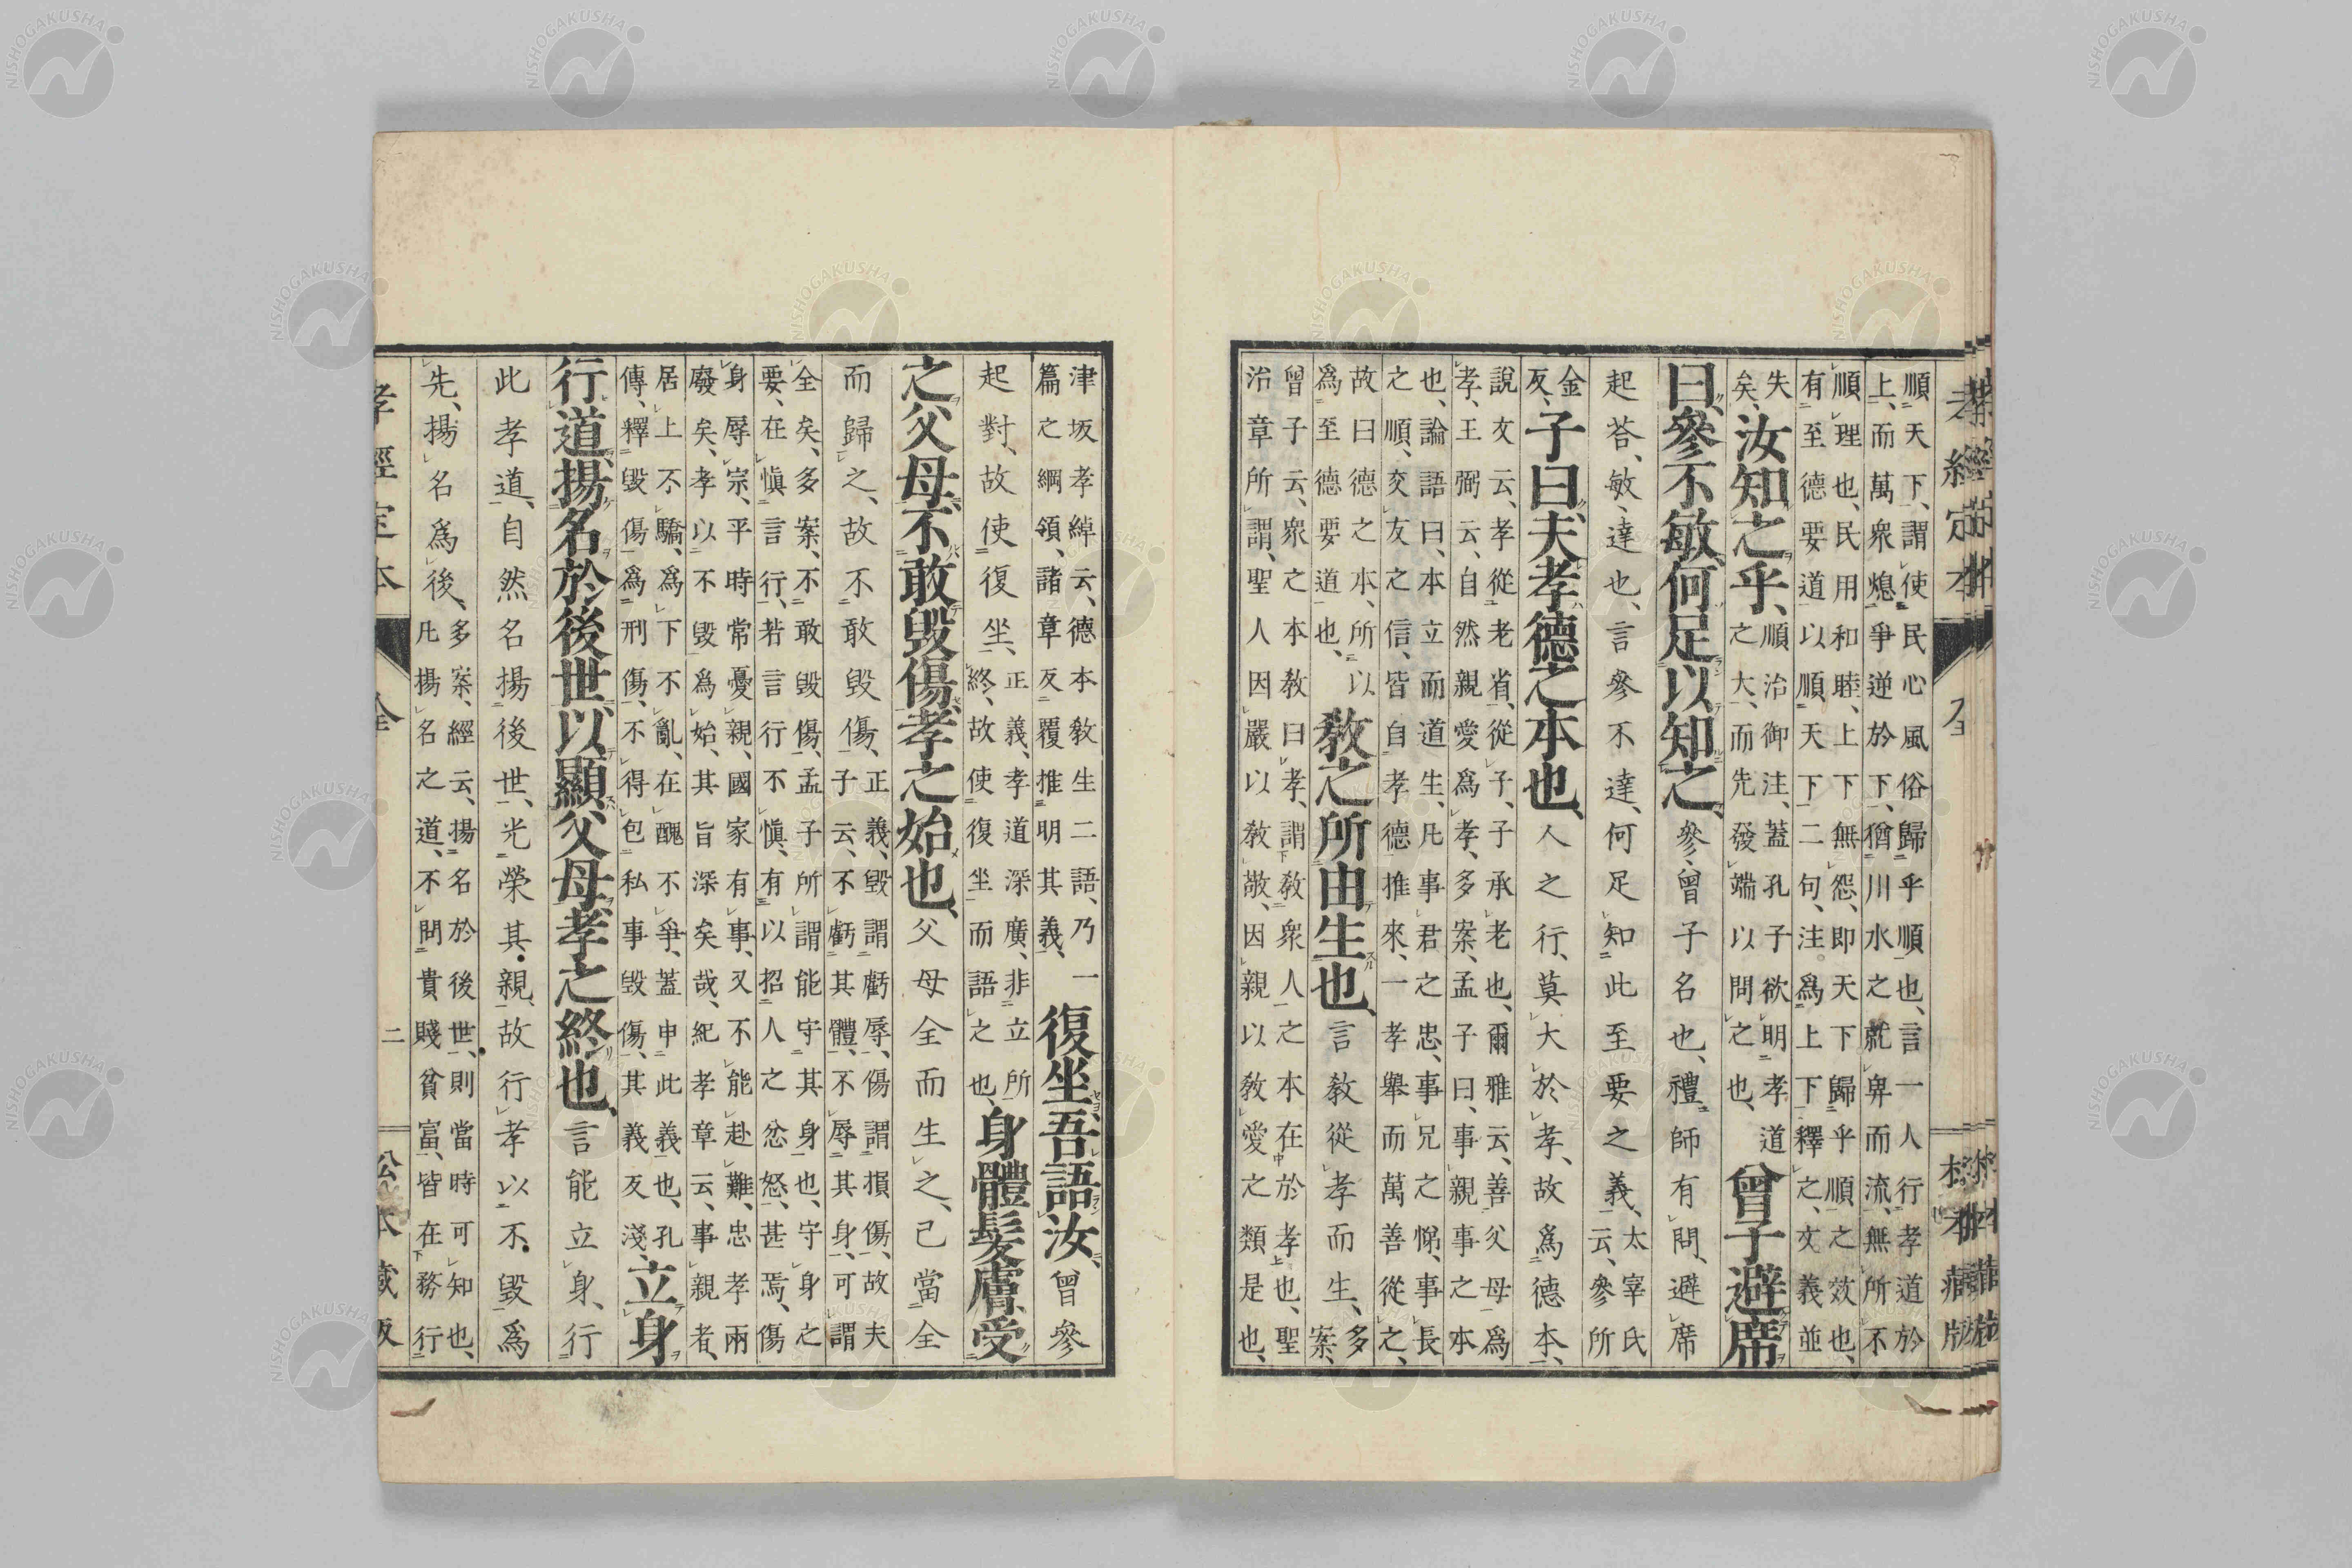 孝經定本　松本藏版
順天下、謂使民心風俗歸乎順也、言一人行孝道於
上、而萬衆熄爭逆於下、猶川水之就卑而流、無所不
順理也、民用和睦、上下無怨、即天下歸乎順之效也、
有至德要道以順天下二句、注爲上下釋之、文義並
失矣、汝知之乎、順治御注、蓋孔子欲明孝道之大、而先發端以問之也、曾子避席
曰、參不敏、何足以知之、參、曾子名也、禮、師有問、避席
起荅、敏、達也、言參不達、何足知此至要之義、太宰氏云、參所
金反、子曰、夫孝德之本也、人之行、莫大於孝、故爲德本、
說文云、孝從老省、從子、子承老也、爾雅云、善父母爲
孝、王弼云、自然親愛爲孝、多案、孟子曰、事親事之本
也、論語曰、本立而道生、凡事君之忠、事兄之悌、事長
之順、交友之信、皆自孝德推來、一孝舉而萬善從之、
故曰德之本、所以爲至德要道也、敎之所由生也、言敎從孝而生、多案、
曾子云、衆之本敎曰孝、謂敎衆人之本在於孝也、聖
治章所謂、聖人因嚴以敎敬、因親以敎愛之類是也、
津坂孝綽云、德本敎生二語、乃一篇之綱領、諸章反覆推明其義、復坐、吾語汝、曾參
起對、故使復坐、正義、孝道深廣、非立所終、故使復坐而語之也、身體髮膚、受
之父母、不敢毀傷、孝之始也、父母全而生之、己當全
而歸之、故不敢毀傷、正義、毀謂虧辱、傷謂損傷、故夫子云、不虧其體、不辱其身、可謂
全矣、多案、不敢毀傷、孟子所謂能守其身也、守身之
要、在愼言行、若言行不愼、有以招人之忿怒、甚焉、傷
身辱宗、平時常憂親、國家有事、又不能赴難、忠孝兩
廢矣、孝以不毀爲始、其旨深矣哉、紀孝章云、事親者、
居上不驕、爲下不亂、在醜不爭、蓋申此義也、孔
傳、釋毀傷爲刑傷、不得包私事毀傷、其義反淺、立身
行道、揚名於後世、以顯父母、孝之終也、言能立身、行
此孝道、自然名揚後世、光榮其親、故行孝以不毀爲
先、揚名爲後、多案、經云、揚名於後世、則當時可知也、凡揚名之道、不問貴賤貧富、皆在務行
孝經定本　全　二　松本藏版
NISHOGAKUSHA